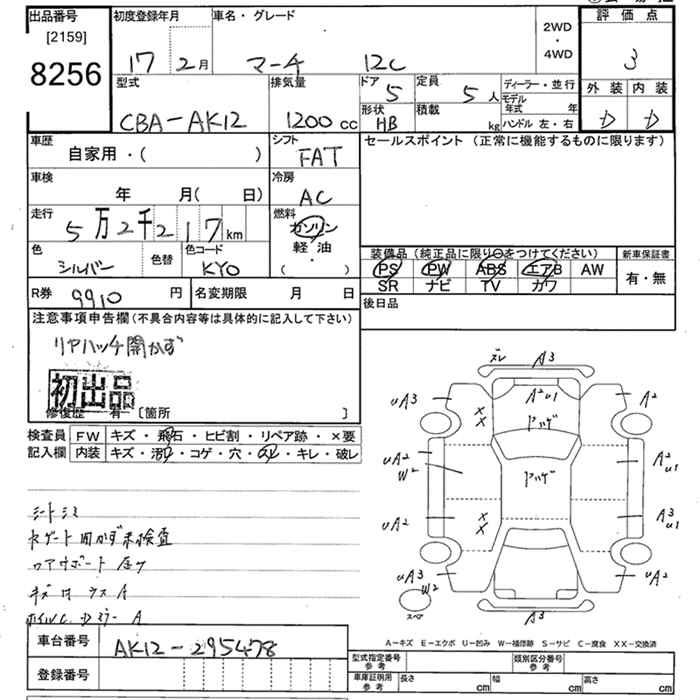 出品番号
[2159]
8256
初度登録年月
17 2月
車名・グレード
マーチ 12C
2WD
・
4WD
評価点
3
型式
CBA-AK12
排気量
1200cc
ドア
5
定員
5人
形状
HB
積載
kg
ディーラー・並行
モデル年式 年
ハンドル 左・右
外装 内装
D D
車歴
自家用・( )
シフト
FAT
車検
年 月( 日)
冷房
AC
走行
5万2千217km
燃料
ガソリン
軽油
・
( )
色
シルバー
色替
色コード
KYO
R券 9910 円
名変期限 月 日
セールスポイント(正常に機能するものに限ります)
装備品(純正品に限り○をつけてください)
PS PW ABS エアB AW
SR ナビ TV カワ
新車保証書
有・無
後日品
注意事項申告欄(不具合内容等は具体的に記入して下さい)
リアハッチ開かず
初出品
修復歴 有 [箇所 ]
検査員
記入欄
FW キズ・飛石・ヒビ割・リペア跡・×要
内装 キズ・汚れ・コゲ・穴・スレ・キレ・破レ
シートシミ
キズ
車台番号
AK12-295478
登録番号
ズレ A3
UA3
A2U1
A2
ヤッゲ
UA2
W2
ヤッゲ
A2
U1
UA2
A3
U1
UA3
W2
UA2
スペア
A3
A-キズ E-エクボ U-凹み W-補修跡 S-サビ C-腐食 XX-交換済
型式指定番号
参考
類別区分番号
参考
車庫証明用
参考
長さ cm
幅 cm
高さ cm